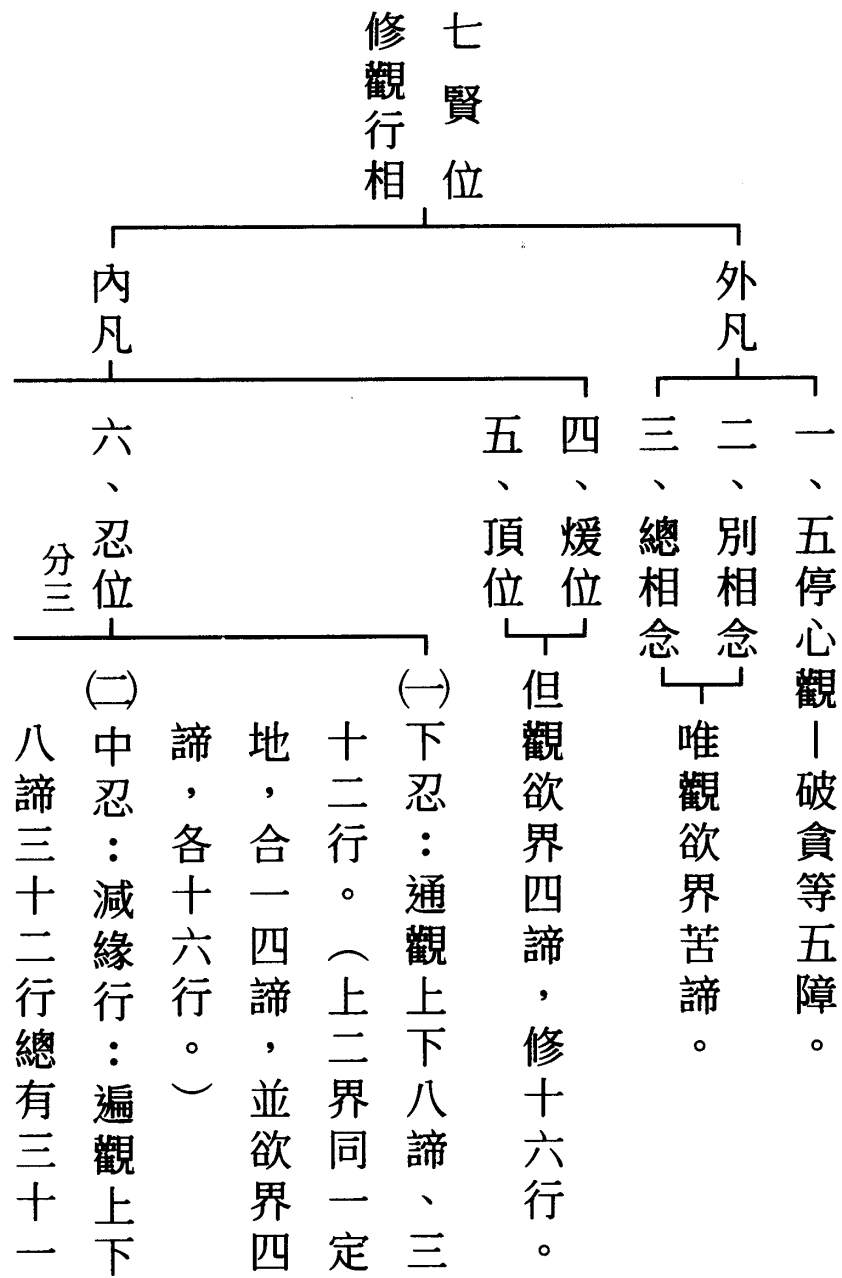 七賢位
修觀行相
外凡
一、五停心觀－破貪等五障。
二、別相念
三、總相念
唯觀欲界苦諦。
內凡
四、煖位
五、頂位
但觀欲界四諦，修十六行。
六、忍位
分三
㈠下忍：通觀上下八諦、三
十二行。（上二界同一定
地，合一四諦，並欲界四
諦，各十六行。）
㈡中忍：減緣行：遍觀上下
八諦三十二行總有三十一